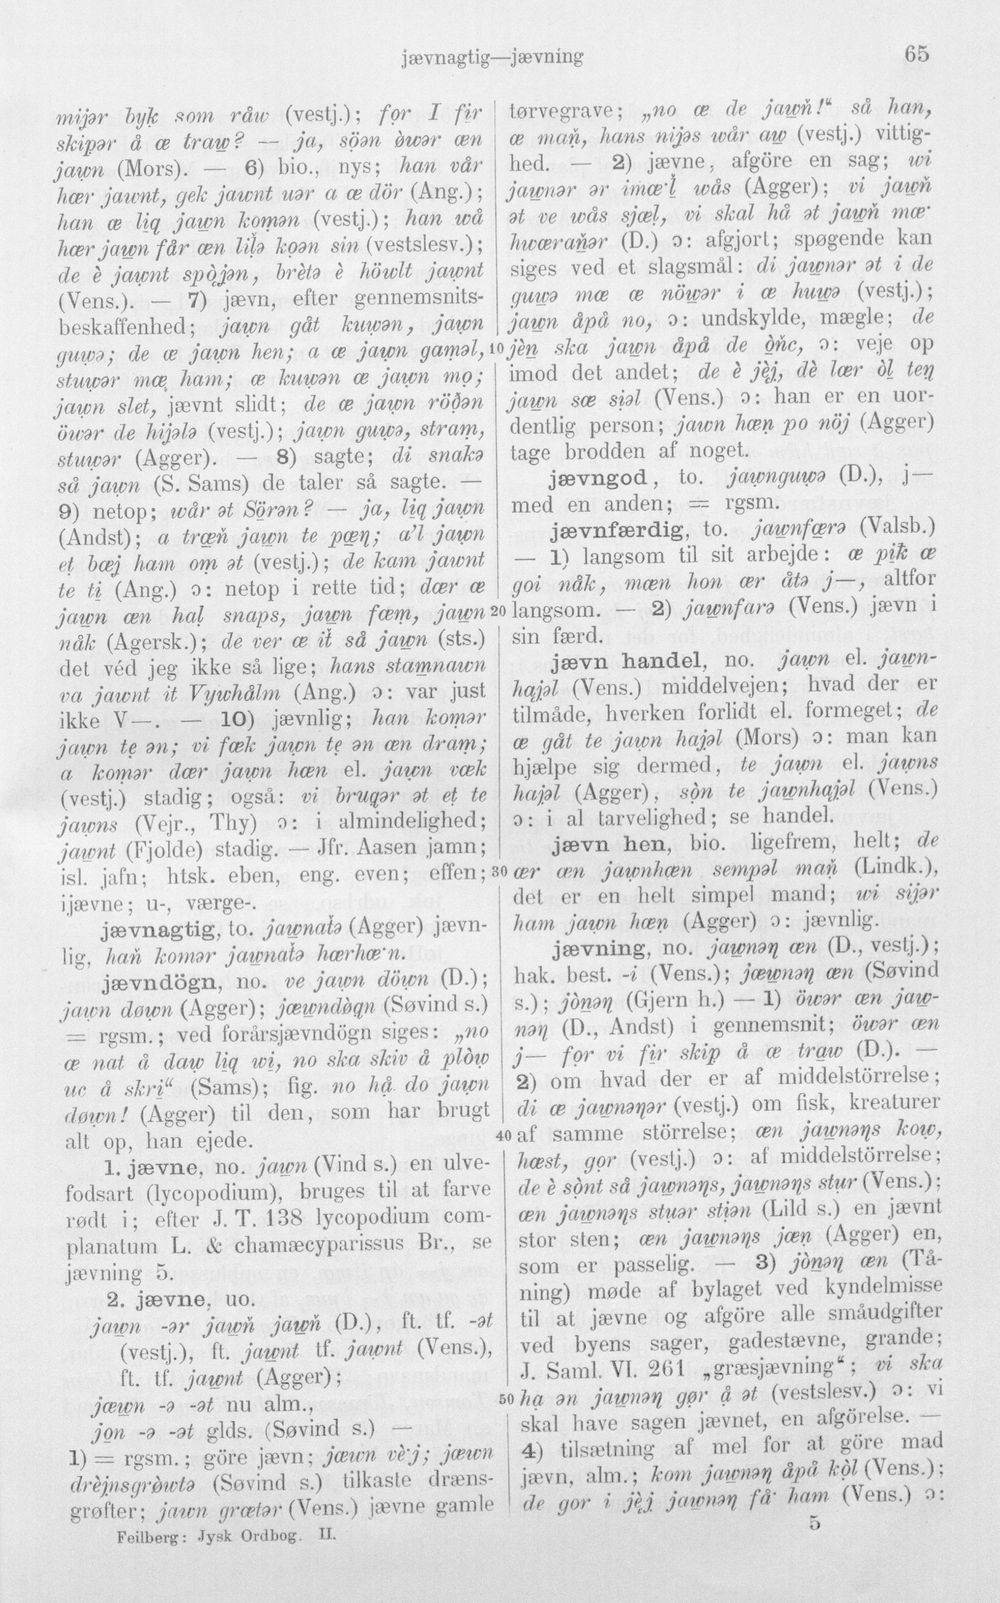 jævnagtig—jævning 65
mijər byk som råw (vestj.); for I fir
skipər å œ traw? — ja, söən òwər œn
jawn (Mors). — 6) bio., nys; han vår
hœr jawnt, gek jawnt uər a œ dör (Ang.);
han œ liq jawn komən (vestj.); han wå
hœr jawn får œn lilə koən sin (vestslesv.);
de è jawnt spòjən, brètə è höwlt jawnt
(Vens.). — 7) jævn, efter gennemsnits-
beskaffenhed; jawn gåt kuwən, jawn
guwə; de œ jawn hen; a œ jawn gaməl,
stuwər mœ ham; œ kuwən œ jawn mo;
jawn slet, jævnt slidt; de œ jawn röðən
öwər de hijələ (vestj.); jawn guwə, stram,
stuwər (Agger). — 8) sagte; di snakə
så jawn (S. Sams) de taler så sagte. —
9) netop; wår ət Sörən? — ja, liq jawn
(Andst); a træñ jawn te pœŋ; a'l jawn
et bœj ham om ət (vestj.); de kam jawnt
te ti (Ang.) ɔ: netop i rette tid; dœr œ
jawn œn hal snaps, jawn fœm, jawn
nåk (Agersk.); de ver œ it så jawn (sts.)
det véd jeg ikke så lige; hans stamnawn
va jawnt it Vywhålm (Ang.) ɔ: var just
ikke V—. — 10) jævnlig; han komər
jawn te ən; vi fœk jawn te ən œn dram;
a komər dœr jawn hœn el. jawn vœk
(vestj.) stadig; også: vi bruqər ət et te
jawns (Vejr., Thy) ɔ: i almindelighed;
jawnt (Fjolde) stadig. — Jfr. Aasen jamn;
isl. jafn; htsk. eben, eng. even; effen;
ijævne; u-, værge-.
jævnagtig, to. jawnatə (Agger) jævn-
lig, hañ komər jawnatə hœrhœ·n.
jævndögn, no. ve jawn döwn (D.);
jawn døwn (Agger); jœwndòqn (Søvind s.)
= rgsm.; ved forårsjævndögn siges: „no
œ nat å daw liq wi, no ska skiv å plòw
uc å skri“ (Sams); fig. no hå do jawn
døwn! (Agger) til den, som har brugt
alt op, han ejede.
1. jævne, no. jawn (Vind s.) en ulve-
fodsart (lycopodium), bruges til at farve
rødt i; efter J. T. 138 lycopodium com-
planatum L. & chamæcyparissus Br., se
jævning 5.
2. jævne, uo.
jawn -ər jawñ jawñ (D.), ft. tf. -ət
(vestj.), ft. jawnt tf. jawnt (Vens.),
ft. tf. jawnt (Agger);
jœwn -ə -ət nu alm.,
jon -ə -ət glds. (Søvind s.) —
1) = rgsm.; göre jævn; jœwn vè·j; jœwn
drèjnsgrøwtə (Søvind s.) tilkaste dræns-
grøfter; jawn grœtər (Vens.) jævne gamle
Feilberg: Jysk Ordbog. II.
tørvegrave; „no œ de jawñ!“ så han,
œ mañ, hans nijəs wår aw (vestj.) vittig-
hed. — 2) jævne, afgöre en sag; wi
jawnər ər imœ·l wås (Agger); vi jawñ
ət ve wås sjœl, vi skal hå ət jawñ mœ·
hwœrañər (D.) ɔ: afgjort; spøgende kan
siges ved et slagsmål: di jawnər ət i de
guwə mœ œ nöwər i œ huwə (vestj.);
jawn åpå no, ɔ: undskylde, mægle; de
10 jèn ska jawn åpå de òñc, ɔ: veje op
imod det andet; de è jèj, dè lær òl teŋ
jawn sœ siəl (Vens.) ɔ: han er en uor-
dentlig person; jawn hœn po nöj (Agger)
tage brodden af noget.
jævngod, to. jawnguwə (D.), j—
med en anden; = rgsm.
jævnfærdig, to. jawnfœrə (Valsb.)
— 1) langsom til sit arbejde: œ pik œ
goi nåk, mœn hon œr åtə j—, altfor
20 langsom. — 2) jawnfarə (Vens.) jævn i
sin færd.
jævn handel, no. jawn el. jawn-
hajəl (Vens.) middelvejen; hvad der er
tilmåde, hverken forlidt el. formeget; de
œ gåt te jawn hajəl (Mors) ɔ: man kan
hjælpe sig dermed, te jawn el. jawns
hajəl (Agger), sòn te jawnhajəl (Vens.)
ɔ: i al tarvelighed; se handel.
jævn hen, bio. ligefrem, helt; de
30 œr œn jawnhœn sempəl mañ (Lindk.),
det er en helt simpel mand; wi sijər
ham jawn hœn (Agger) ɔ: jævnlig.
jævning, no. jawnəŋ œn (D., vestj.);
hak. best. -i (Vens.); jœwnəŋ œn (Søvind
s.); jònəŋ (Gjern h.) — 1) öwər œn jaw-
nəŋ (D., Andst) i gennemsnit; öwər œn
j— for vi fir skip å œ traw (D.). —
2) om hvad der er af middelstörrelse;
di œ jawnəŋər (vestj.) om fisk, kreaturer
40 af samme störrelse; œn jawnəŋs kow,
hœst, gor (vestj.) ɔ: af middelstörrelse;
de è sònt så jawnəŋs, jawnəŋs stur (Vens.);
œn jawnəŋs stuər stiən (Lild s.) en jævnt
stor sten; œn jawnəŋs jœn (Agger) en,
som er passelig. — 3) jònəŋ œn (Tå-
ning) møde af bylaget ved kyndelmisse
til at jævne og afgöre alle småudgifter
ved byens sager, gadestævne, grande;
J. Saml. VI. 261 „græsjævning“; vi ska
50 ha ən jawnəŋ gør å ət (vestslesv.) ɔ: vi
skal have sagen jævnet, en afgörelse. —
4) tilsætning af mel for at göre mad
jævn, alm.; kom jawnəŋ åpå kòl (Vens.);
de gor i jèj jawnəŋ få· ham (Vens.) ɔ:
5